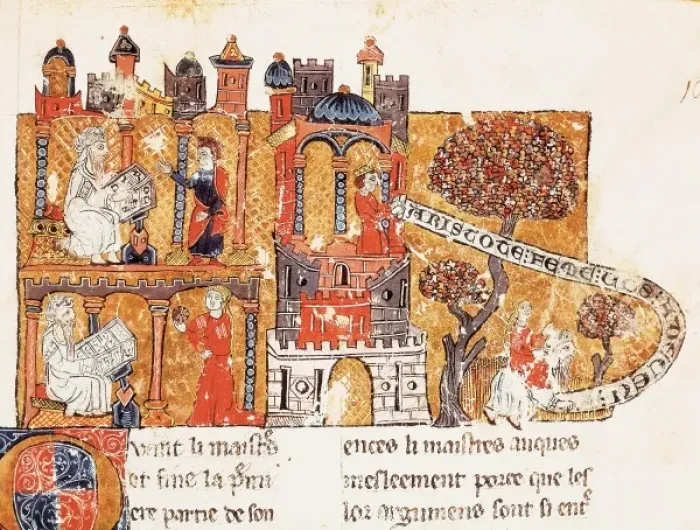 ARISTOTE:FEME:UOS:
Quant li maistr
et fine la pmi
ere partie de son
ences li maistres auques
mesleement porce que les
lor argumens sont si ent